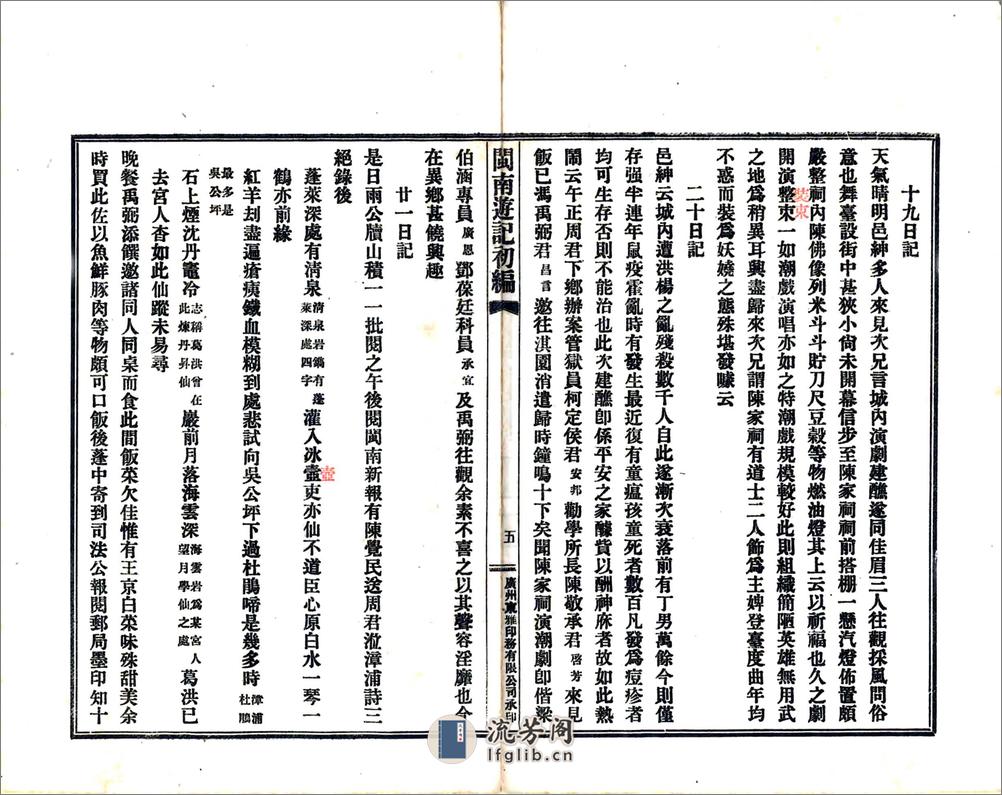 十九日記
天氣晴明邑紳多人來見次兄言城內演劇建醮遂同佳眉三人往觀採風問俗
意也舞臺設街中甚狹小尙未開幕信步至陳家祠祠前搭棚一懸汽燈佈置頗
嚴整祠內陳佛像列米斗斗貯刀尺豆穀等物燃油燈其上云以祈福也久之劇
開演整束一如潮戲演唱亦如之特潮戲規模較好此則組織簡陋英雄無用武
裝束
之地爲稍異耳興盡歸來次兄謂陳家祠有道士二人飾爲主婢登臺度曲年均
不惑而裝爲妖嬈之態殊堪發噱云
二十日記
邑紳云城內遭洪楊之亂殘殺數千人自此遂漸次衰落前有丁男萬餘今則僅
存强半連年鼠疫霍亂時有發生最近復有童瘟孩童死者數百凡發爲痘疹者
均可生存否則不能治也此次建醮卽係平安之家醵貲以酬神庥者故如此熱
鬧云午正周君下鄉辦案管獄員柯定侯君安邦勸學所長陳敬承君啓芳來見
飯已馮禹弼君昌言邀往淇園消遣歸時鐘鳴十下矣聞陳家祠演潮劇卽偕梁
閩南遊記初編
五
廣州東雅印務有限公司承印
伯涵專員廣恩鄧葆廷科員承宜及禹弼往觀余素不喜之以其聲容淫靡也今
在異鄉甚饒興趣
廿一日記
是日雨公牘山積一一批閱之午後閱閩南新報有陳覺民送周君涖漳浦詩三
絕錄後
蓬萊深處有淸泉淸泉岩鐫有蓬萊深處四字灌入冰壺吏亦仙不道臣心原白水一琴一
壺
鶴亦前緣
紅羊刦盡遍瘡痍鐵血模糊到處悲試向吳公坪下過杜鵑啼是幾多時漳浦杜鵑
最多是吳公坪
石上煙沈丹竈冷志稱葛洪曾在此煉丹昇仙巖前月落海雲深海雲岩爲某宮人望月學仙之處葛洪已
去宮人杳如此仙蹤未易尋
晚餐禹弼添饌邀諸同人同桌而食此間飯菜欠佳惟有王京白菜味殊甜美余
時買此佐以魚鮮豚肉等物頗可口飯後蓬中寄到司法公報閱郵局墨印知十
流芳閣
lfglib.cn